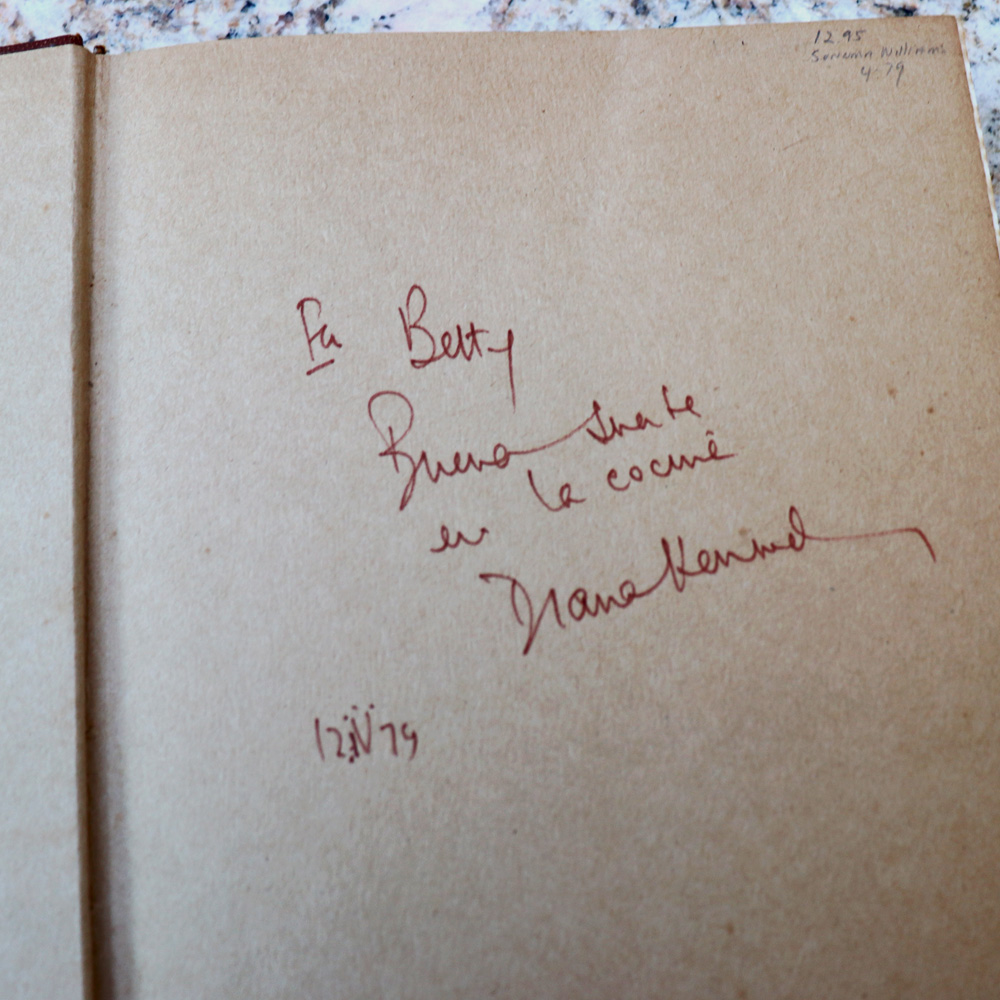 12 95
Sonoma Williams
4-79
For Betty
Buena suerte
en la cocina
Diana Kennedy
12 IV 79